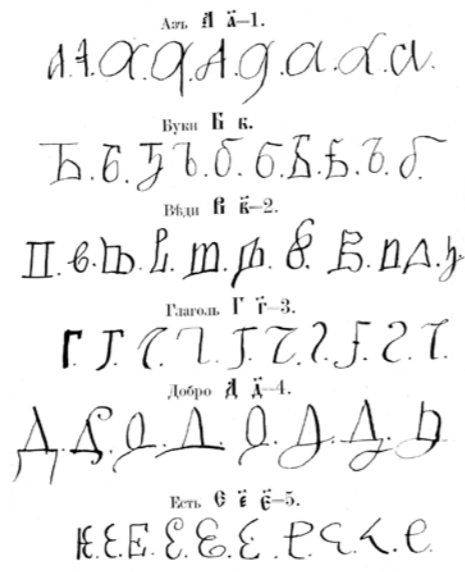 Азъ А ӓ—1.
А.А.а.а.А.а.а.а.а.
Буки Б б.
Б.Б.Б.Б.б.б.Б.Б.б.б
Вѣди В в̈—2.
Глаголь Г г̈—3.
Г.Г.Г.Г.Г.Г.Г.Г.Г.Г.
Добро Д д̈—4.
Д.Д.Д.Д.Д.Д.Д.Д
Есть Є є̈ є̈—5.
Е.Е.Е.Е.Е.Е.Е.Е.Е.е.